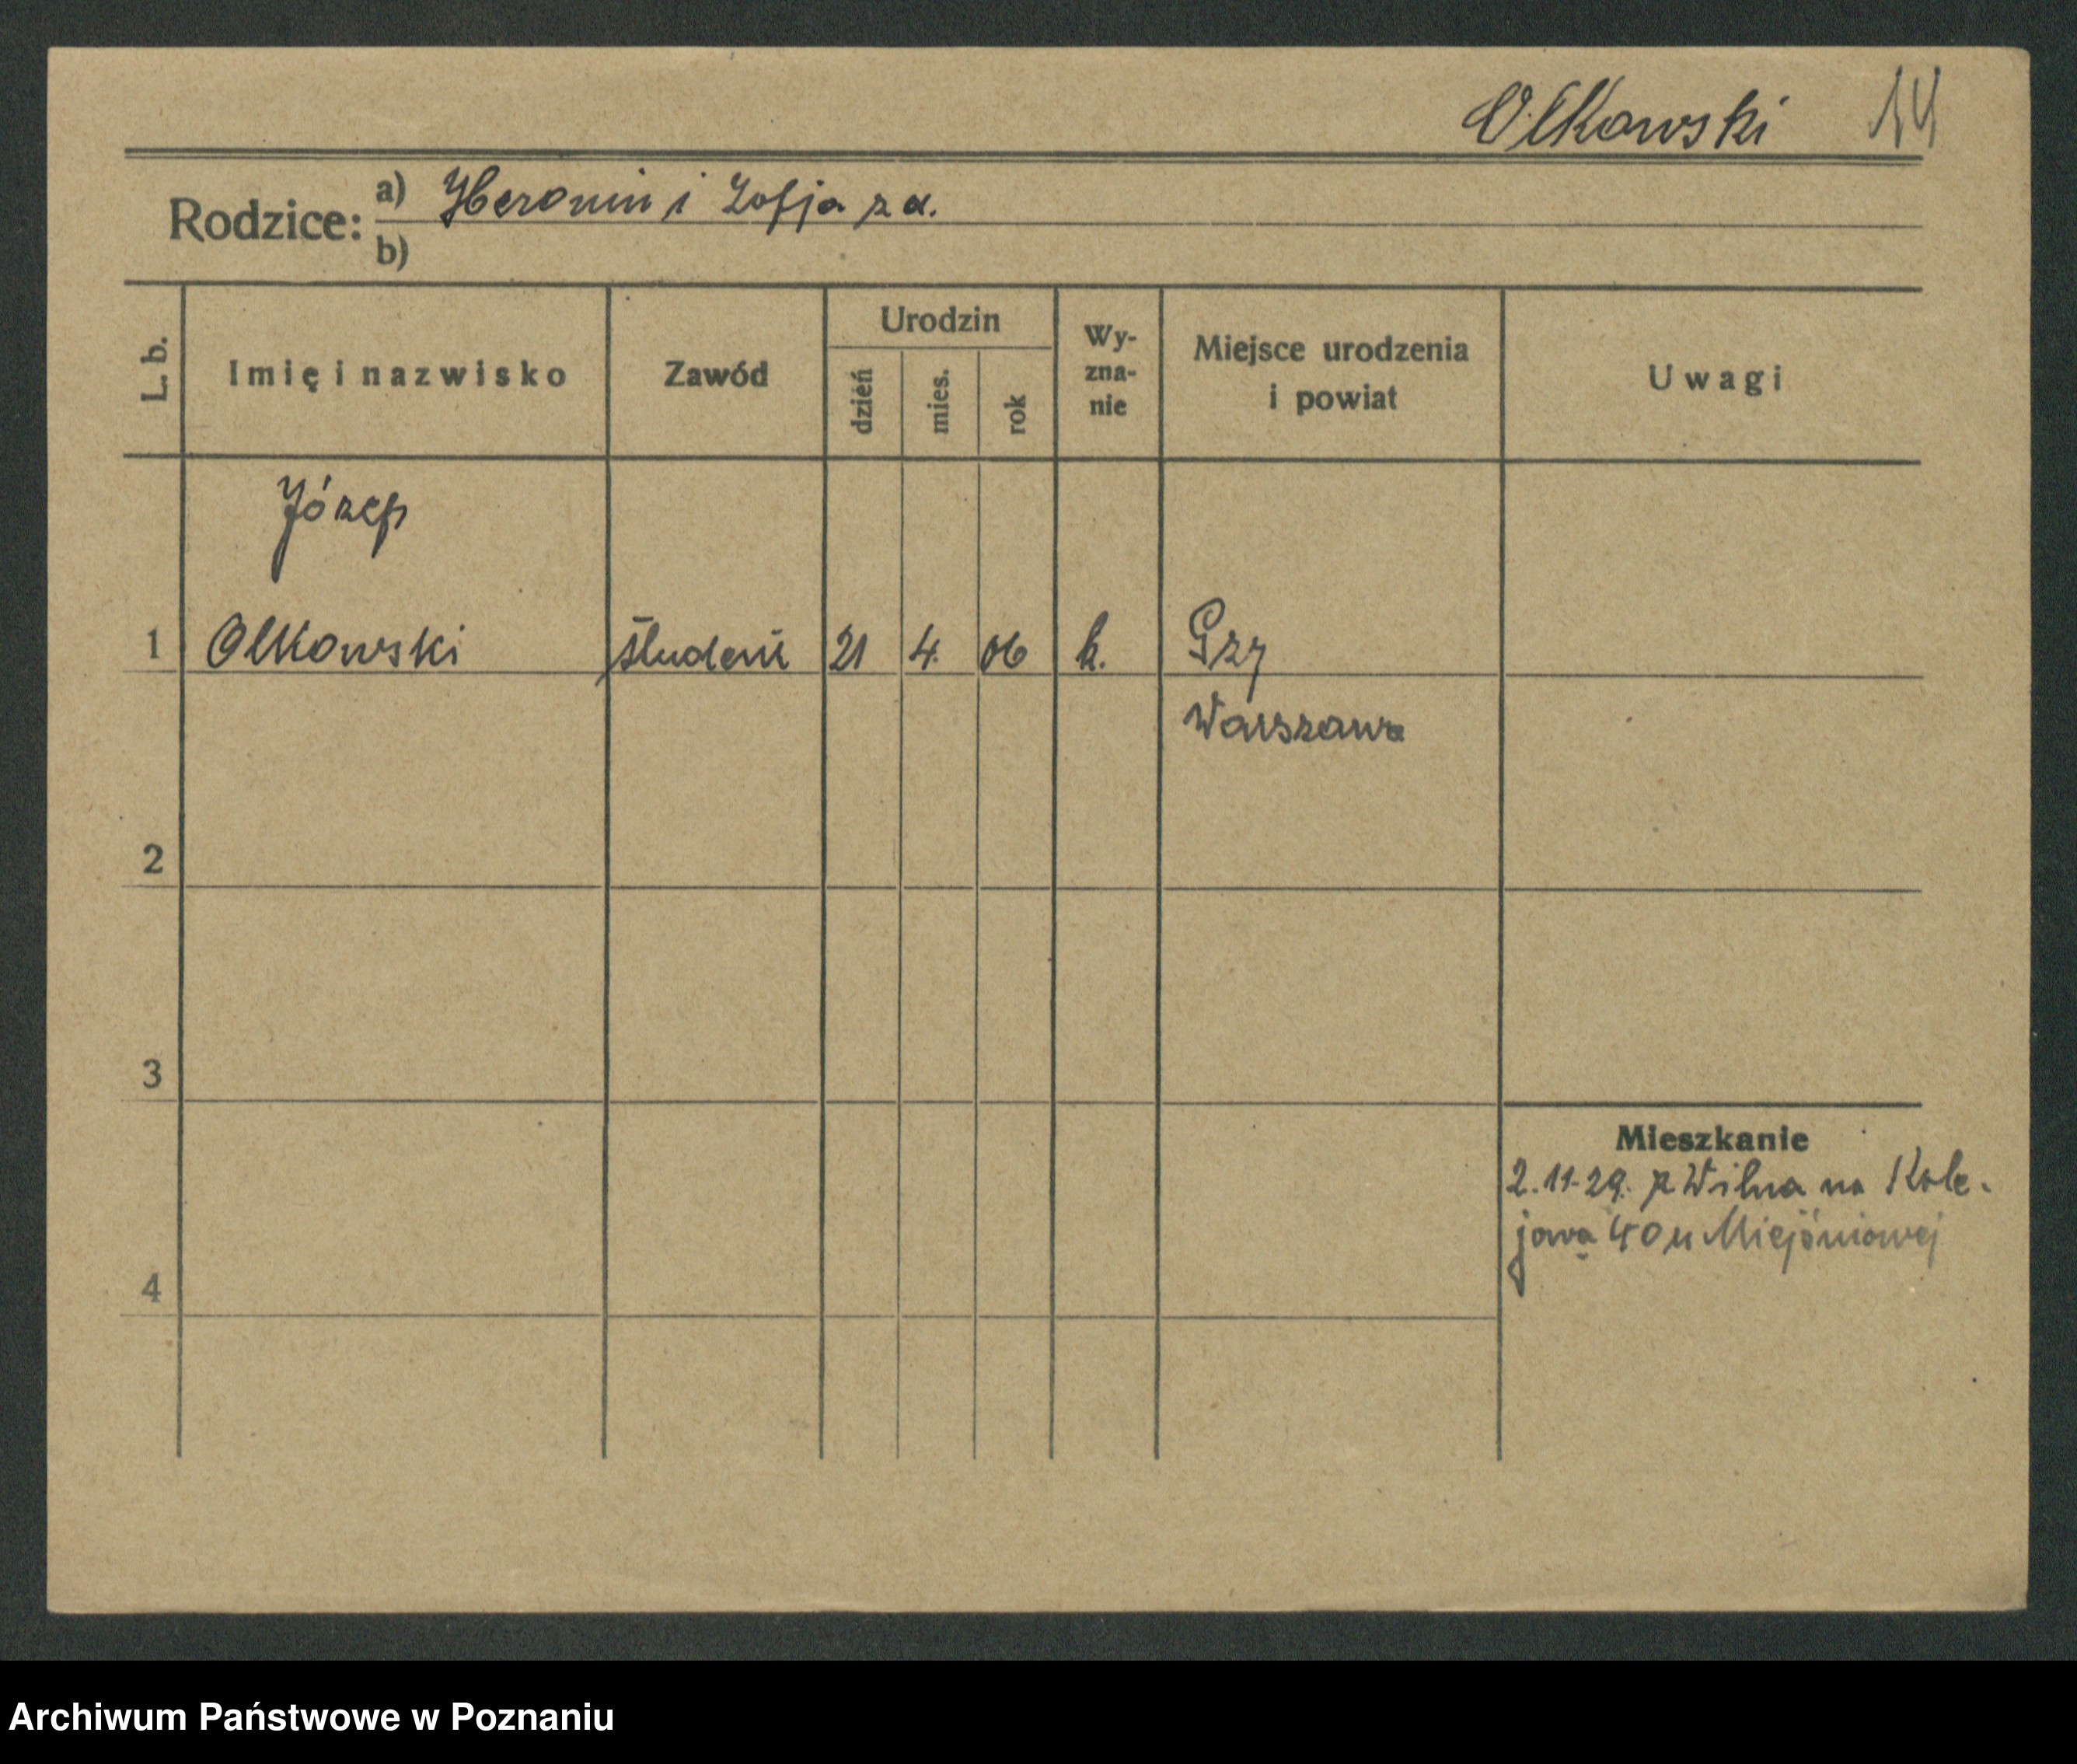 Olkowski 14
Rodzice: a) Heronim i Zofja z d.
b)
L. b. Imię i nazwisko Zawód Urodzin dzień mies. rok Wy-zna-nie Miejsce urodzenia i powiat Uwagi
Józef
1 Olkowski student 21 4. 06 k. Gzy
Warszawa
2
3
Mieszkanie
2.11.29. z Wilna na Kole-
jową 40 u
4
Archiwum Państwowe w Poznaniu